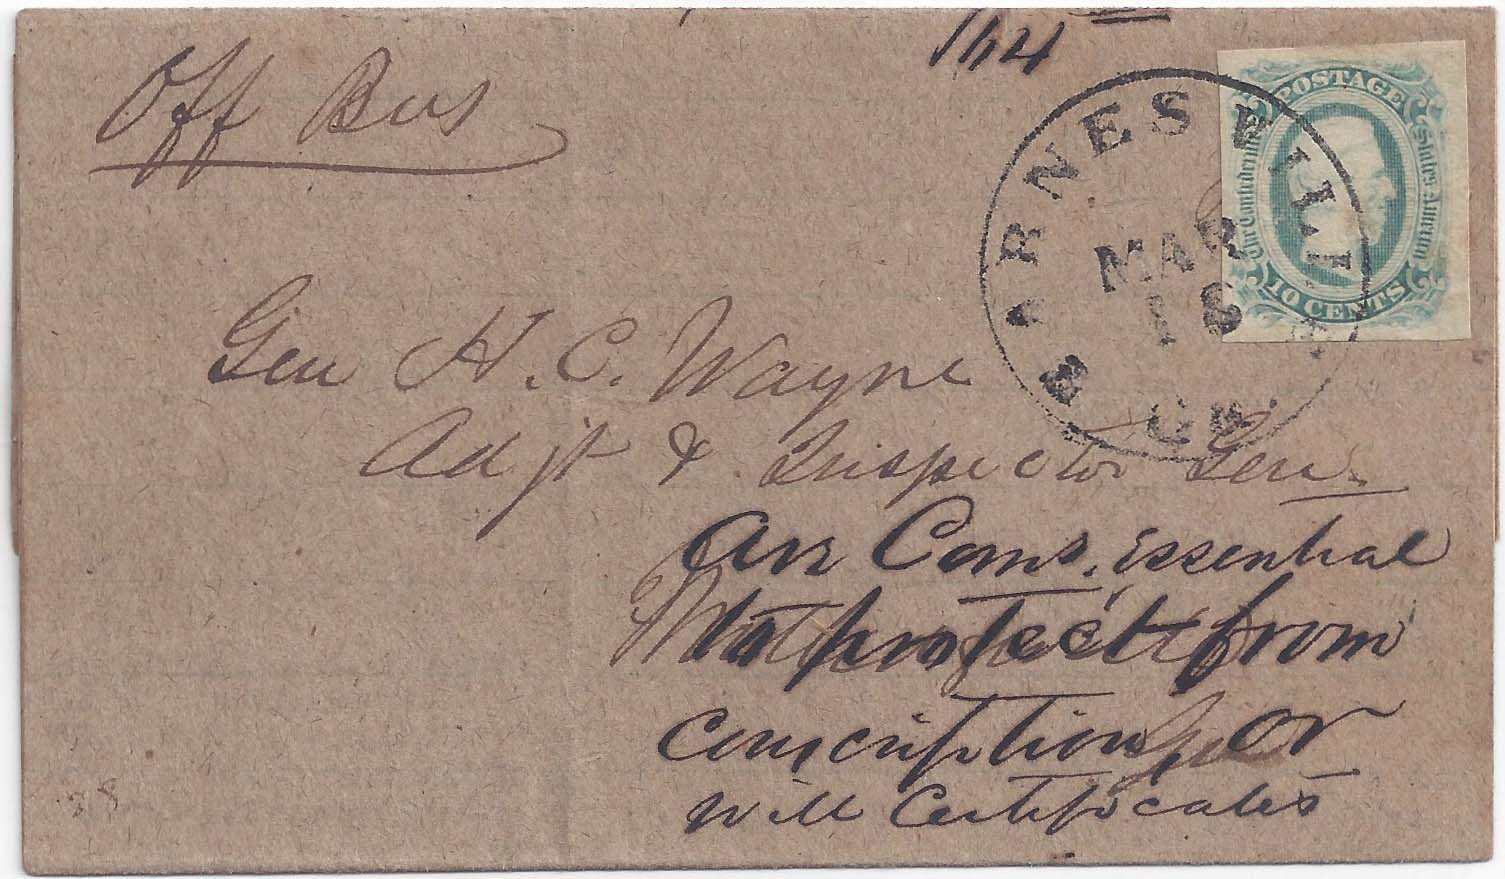 164
Off Bus
POSTAGE
The Confederate States America
10 CENTS
BARNESVILLE
MAR
18
GA.
Gen H. C. Wayne
Adjt & Inspector Gen.
Are Coms. essential
to protect from
conscription, or
will Certificates